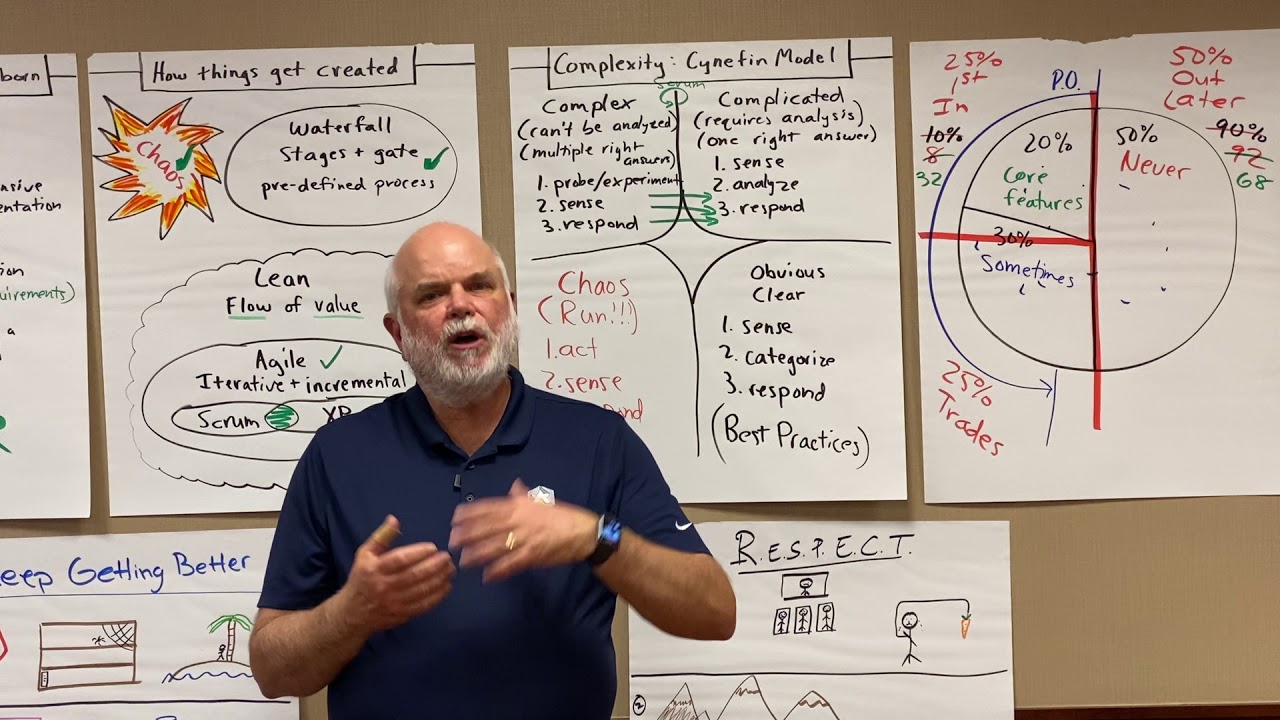 born
entation
uirements)
a
How things get created
Chaos
Waterfall
Stages + gate
pre-defined process
Lean
Flow of value
Agile
Iterative + incremental
Scrum
XP
Complexity: Cynefin Model
scrum
Complex
(can't be analyzed)
(multiple right
answers)
1. probe/experiment
2. sense
3. respond
Complicated
(requires analysis)
(one right answer)
1. sense
2. analyze
3. respond
Chaos
(Run!!!)
1. act
2. sense
Obvious
Clear
1. sense
2. categorize
3. respond
(Best Practices)
25%
1st
In
10%
8
32
P.O.
50%
Out
Later
90%
92
68
20%
Core
features
50%
Never
30%
Sometimes
25%
Trades
eep Getting Better
R.E.S.P.E.C.T.
2